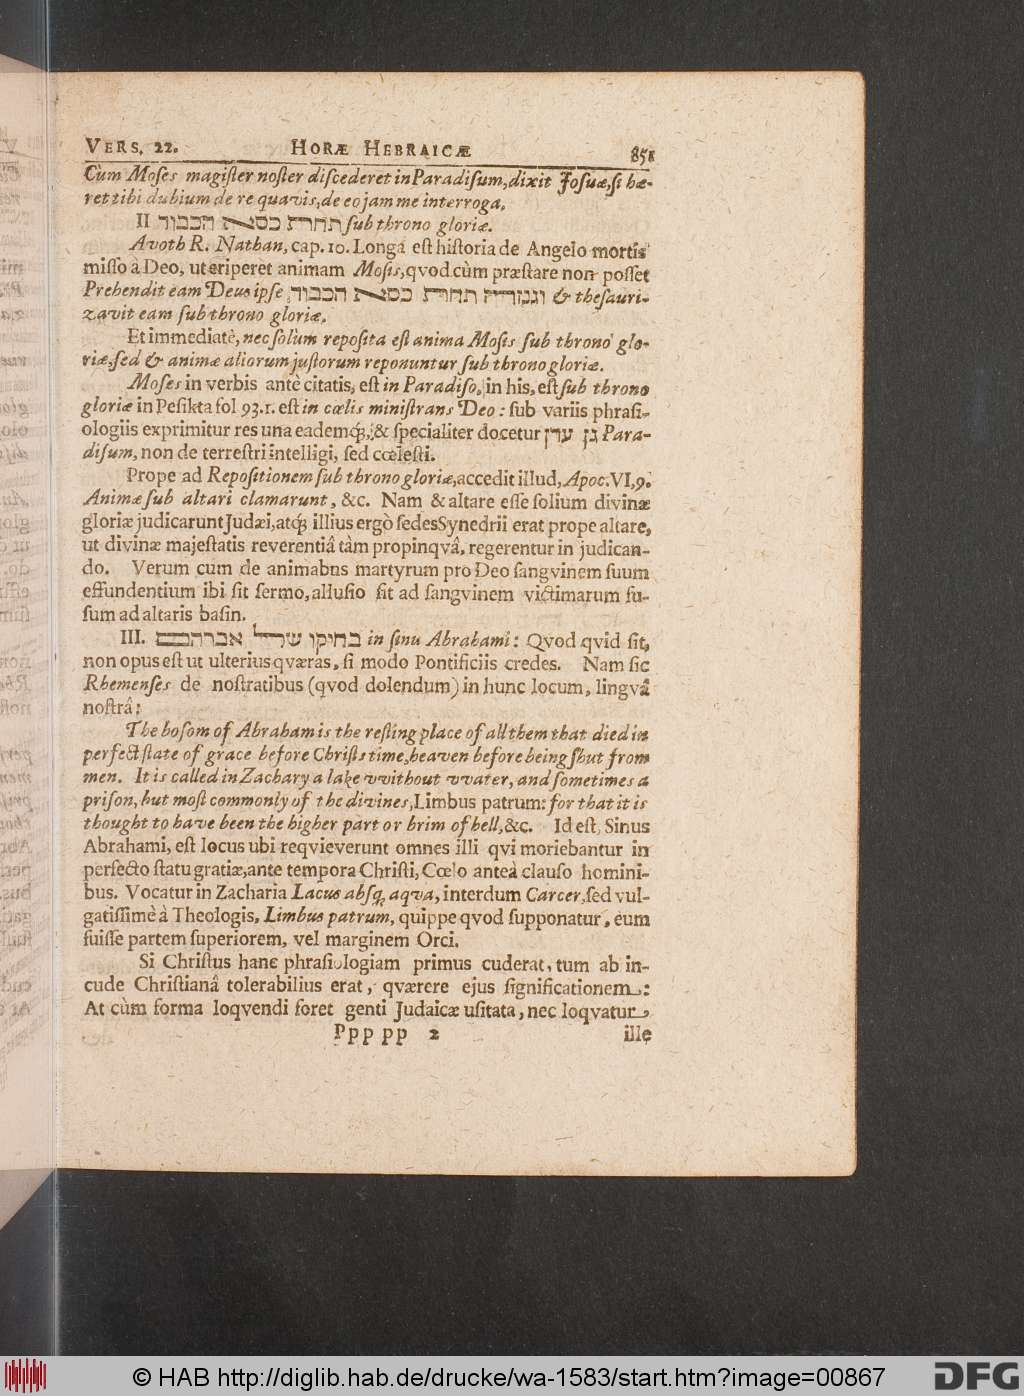 VERS. 22. HORÆ HEBRAICÆ 851
Cùm Moses magister noster discederet in Paradisum, dixit Josuæ, si hæ-
ret tibi dubium de re quavis, de eo jam me interroga.
II תחרת כסא הכבוד sub throno gloriæ.
Avoth R. Nathan, cap. 10. Longa est historia de Angelo mortis
misso à Deo, ut eriperet animam Mosis, qvod cùm præstare non posset
Prehendit eam Deus ipse, וגנזרה תחות כסא הכבוד & thesauri-
zavit eam sub throno gloriæ.
Et immediatè, nec solùm reposita est anima Mosis sub throno glo-
riæ, sed & animæ aliorum justorum reponuntur sub throno gloriæ.
Moses in verbis antè citatis, est in Paradiso, in his, est sub throno
gloriæ in Pesikta fol 93. 1. est in cœlis ministrans Deo: sub variis phrasi-
ologiis exprimitur res una eademq;, & specialiter docetur גן ערן Para-
disum, non de terrestri intelligi, sed cœlesti.
Prope ad Repositionem sub throno gloriæ, accedit illud, Apoc. VI, 9.
Animæ sub altari clamarunt, &c. Nam & altare esse solium divinæ
gloriæ judicarunt Judæi, atq; illius ergò sedes Synedrii erat prope altare,
ut divinæ majestatis reverentiâ tàm propinqvâ, regerentur in judican-
do. Verum cum de animabus martyrum pro Deo sangvinem suum
effundentium ibi sit sermo, allusio sit ad sangvinem victimarum fu-
sum ad altaris basin.
III. בחיקו של אברהם in sinu Abrahami: Qvod qvid sit,
non opus est ut ulterius qværas, si modo Pontificiis credes. Nam sic
Rhemenses de nostratibus (qvod dolendum) in hunc locum, lingvâ
nostrâ:
The bosom of Abraham is the resting place of all them that died in
perfect state of grace before Christs time, heaven before being shut from
men. It is called in Zachary a lake vvithout vvater, and sometimes a
prison, but most commonly of the divines, Limbus patrum: for that it is
thought to have been the higher part or brim of hell, &c. Id est, Sinus
Abrahami, est locus ubi reqvieverunt omnes illi qvi moriebantur in
perfecto statu gratiæ, ante tempora Christi, Cœlo anteà clauso homini-
bus. Vocatur in Zacharia Lacus absq; aqva, interdum Carcer, sed vul-
gatissimè à Theologis, Limbus patrum, quippe qvod supponatur, eum
fuisse partem superiorem, vel marginem Orci.
Si Christus hanc phrasiologiam primus cuderat, tum ab in-
cude Christianâ tolerabilius erat, qværere ejus significationem:
At cùm forma loqvendi foret genti Judaicæ usitata, nec loqvatur
Ppp pp 2 ille
© HAB http://diglib.hab.de/drucke/wa-1583/start.htm?image=00867 DFG